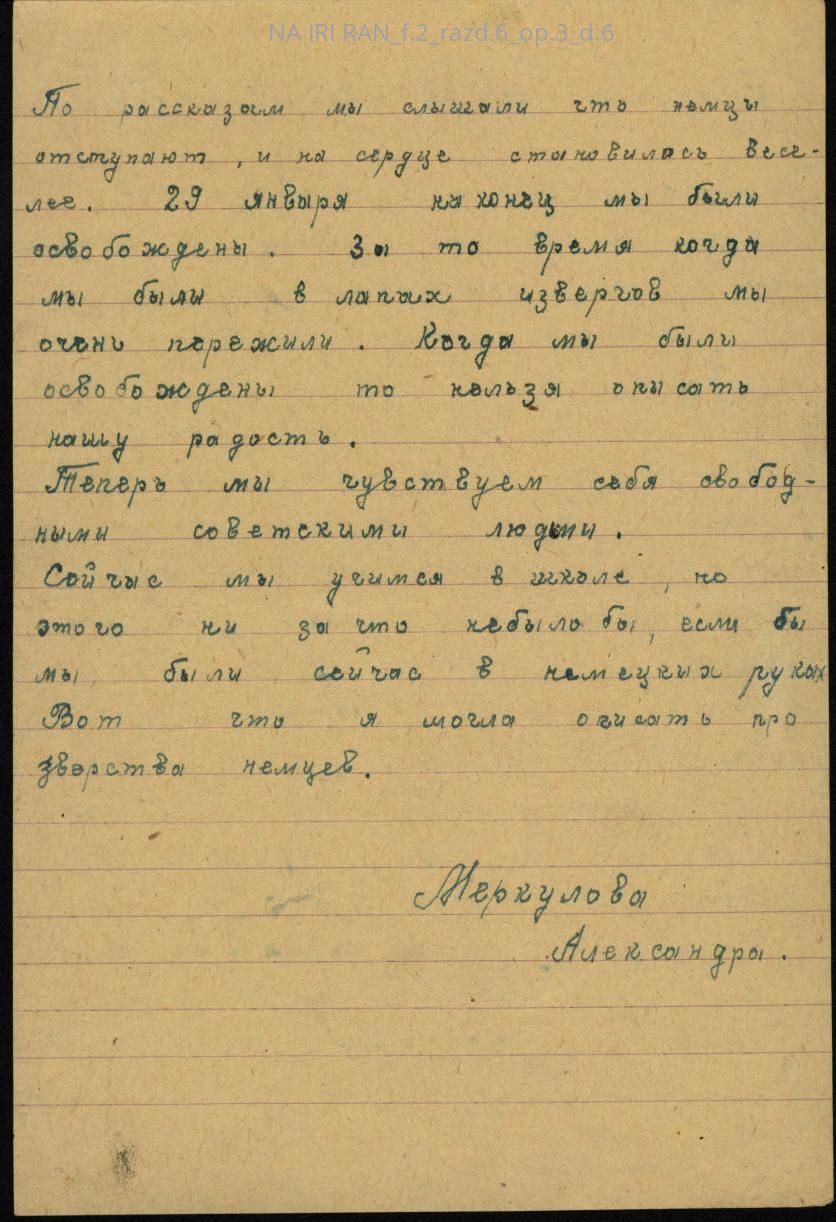 NA IRI RAN_f.2_razd.6_op.3_d.6
По рассказам мы слышали что немцы
отступают , и на сердце становилась весе-
лее. 29 января наконец мы были
освобождены. За то время когда
мы были в лапах извергов мы
очень пережили. Когда мы были
освобождены то нельзя описать
нашу радость.
Теперь мы чувствуем себя свобод-
ными советскими людми.
Сейчас мы учимся в школе, но
этого ни за что небыло бы, если бы
мы были сейчас в немецких руках
Вот что я могла описать про
зверства немцев.
Меркулова
Александра.